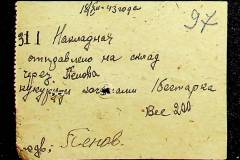 18/XII-43 года
97
311 Накладная
отправлено на склад
чрез Пенова
кукурузы 1бестарка
Вес 200
Пенов.